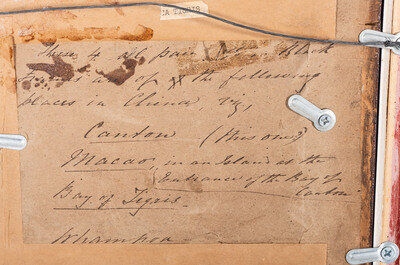 these 4 oil paintings Black
are of the following
places in China, viz,
Canton (this one)
Macao, in an Island at the
Entrance of the Bay of
Canton
Bay of Tigris
Whampoa